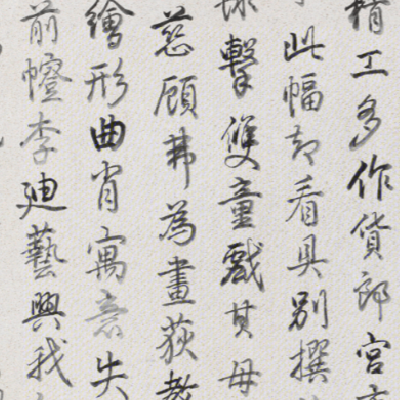 精工多作貨郎宮
此幅却看具別撰
擊雙童戲其母
慈顧弗為畫荻教
繪形曲肖寓意失
前幰李廸藝與我